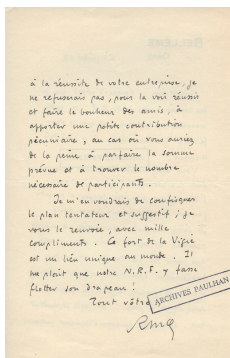 à la réussite de votre entreprise, je
ne refuserais pas, pour la voir réussir
et faire le bonheur des amis, à
apporter une petite contribution
pécuniaire, au cas où vous auriez
de la peine à parfaire la somme
prévue et à trouver le nombre
nécessaire de participants.
Je m'en voudrais de confisquer
le plan tentateur et suggestif ; je
vous le renvoie, avec mille
compliments. Ce fort de la Vigie
est un lieu unique au monde. Il
me plaît que notre N.R.F. y fasse
flotter son drapeau !
Tout vôtre
ARCHIVES PAULHAN
RMG